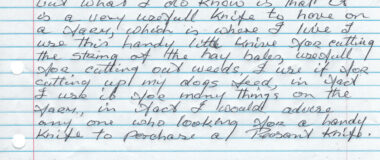 but what I do know is that it
is a very usefull knife to have on
a farm, which is where I live I
use this handy little knive for cutting
the string of the hay bales, usefull
for cutting out weeds, I use it for
cutting up my dogs feed, in fact
I use it for many things on the
farm, in fact I would advise
any one who looking for a handy
knife to purchase a Peasant knife.